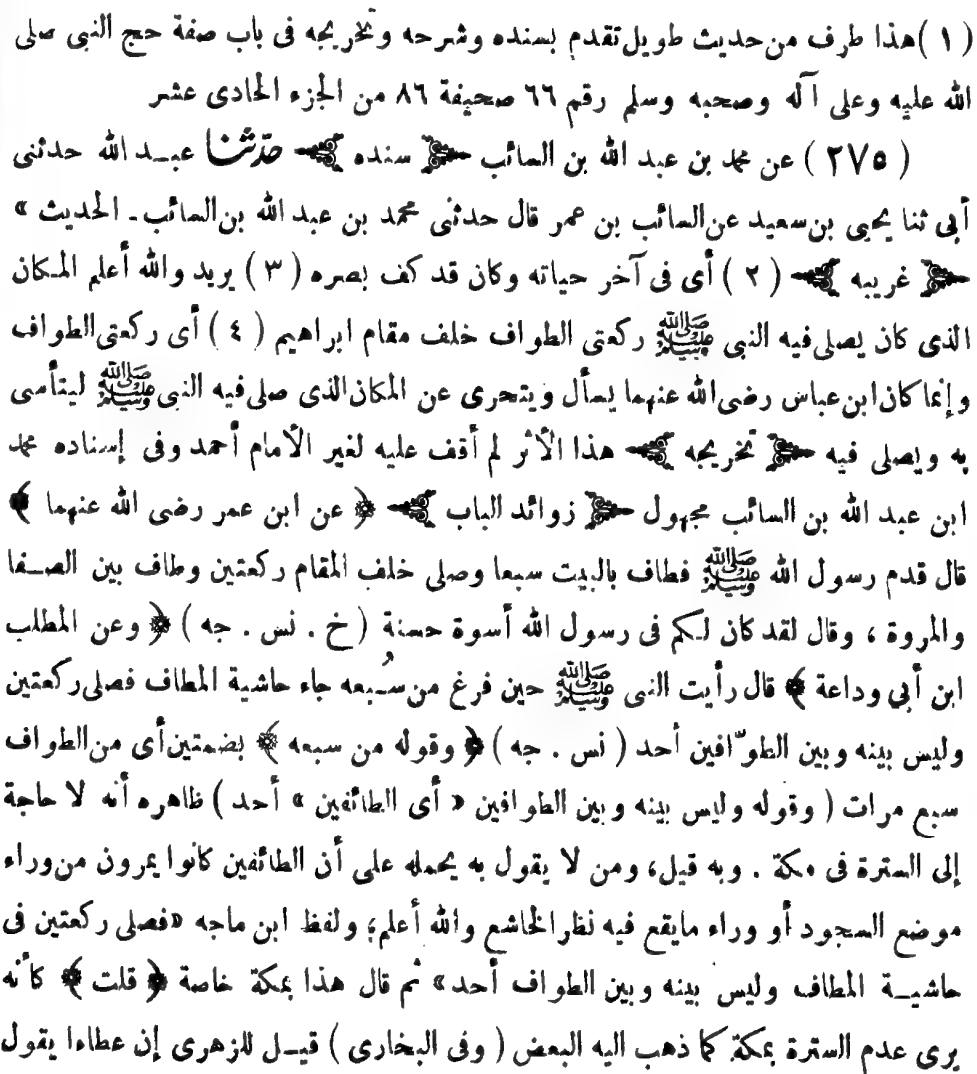 (١) هذا طرف من حديث طويل تقدم بسنده وشرحه وتخريجه فى باب صفة حج النبى صلى
الله عليه وعلى آله وصحبه وسلم رقم ٦٦ صحيفة ٨٦ من الجزء الحادى عشر
(٢٧٥) عن محمد بن عبد الله بن السائب ﴿ سنده ﴾ حدّثنا عبـد الله حدثنى
أبى ثنا يحيى بن سعيد عن السائب بن عمر قال حدثنى محمد بن عبد الله بن السائب ـ الحديث »
﴿ غريبه ﴾ (٢) أى فى آخر حياته وكان قد كف بصره (٣) يريد والله أعلم المـكان
الذى كان يصلى فيه النبى ﷺ ركعتى الطواف خلف مقام ابراهيم (٤) أى ركعتى الطواف
وإنما كان ابن عباس رضى الله عنهما يسأل ويتحرى عن المكان الذى صلى فيه النبى ﷺ ليتأسى
به ويصلى فيه ﴿ تخريجه ﴾ هذا الأثر لم أقف عليه لغير الأمام أحمد وفى إسناده محمد
ابن عبد الله بن السائب مجهول ﴿ زوائد الباب ﴾ ﴿ عن ابن عمر رضى الله عنهما ﴾
قال قدم رسول الله ﷺ فطاف بالبيت سبعا وصلى خلف المقام ركعتين وطاف بين الصـفا
والمروة ، وقال لقد كان لـكم فى رسول الله أسوة حسنة (خ . نس . جه) ﴿ وعن المطلب
ابن أبى وداعة ﴾ قال رأيت النبى ﷺ حين فرغ من سُـبعه جاء حاشية المطاف فصلى ركعتين
وليس بينه وبين الطوّافين أحد (نس . جه) ﴿ وقوله من سبعه ﴾ بضمتين أى من الطواف
سبع مرات (وقوله وليس بينه وبين الطوافين « أى الطائفين » أحد) ظاهره أنه لا حاجة
إلى السترة فى مكة . وبه قيل، ومن لا يقول به يحمله على أن الطائفين كانوا يمرون من وراء
موضع السجود أو وراء مايقع فيه نظر الخاشع والله أعلم؛ ولفظ ابن ماجه «فصلى ركعتين فى
حاشيـة المطاف وليس بينه وبين الطواف أحد» ثم قال هذا بمكة خاصة ﴿ قلت ﴾ كأنه
يرى عدم السترة بمكة كما ذهب اليه البعض (وفى البخارى) قيـل للزهرى إن عطاءا يقول